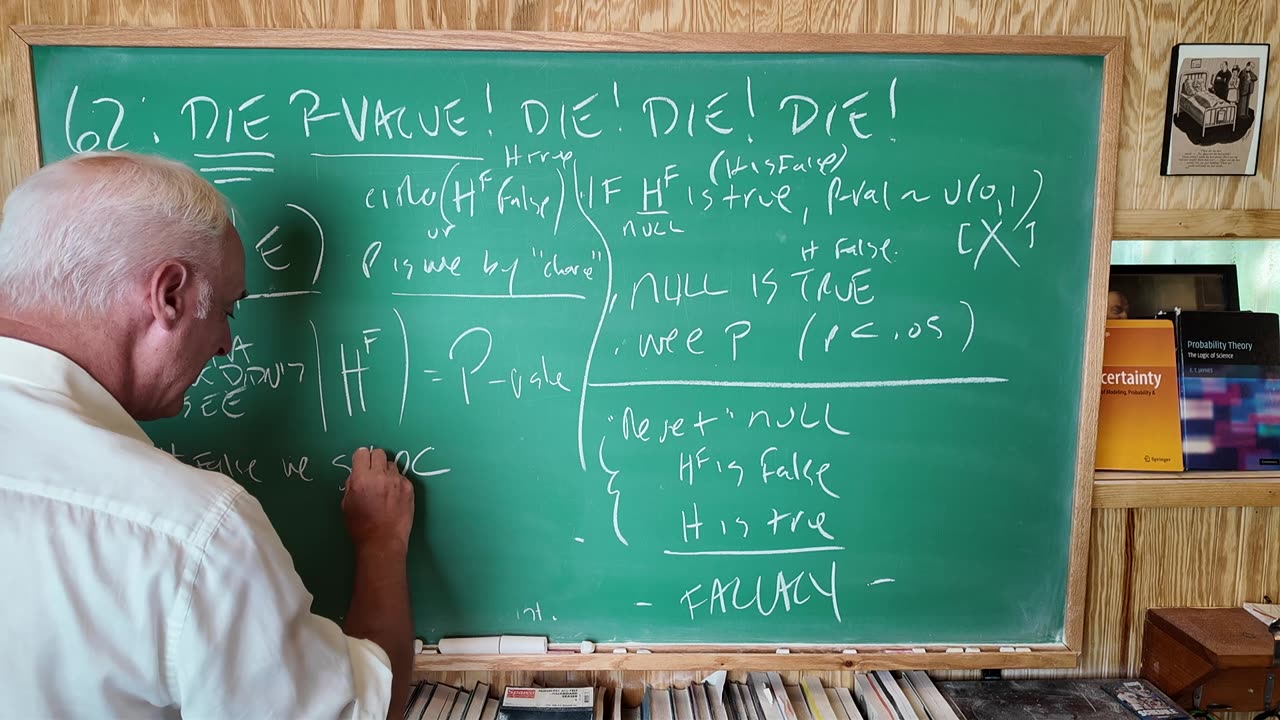 62: DIE P-VALUE! DIE! DIE! DIE!
H true
(H is False)
either (H^F False)
or
P is wee by "chance"
E)
IF H^F is true, P-val ~ U(0,1)
null
[X]
H False.
NULL IS TRUE
wee P (P < .05)
DIDN'T
SEE
| H^F ) = P-value
False we
"Reject" null
H^F is False
H is true
- FALLACY -
certainty
of Modeling, Probability &
Springer
Probability Theory
The Logic of Science
E. T. JAYNES